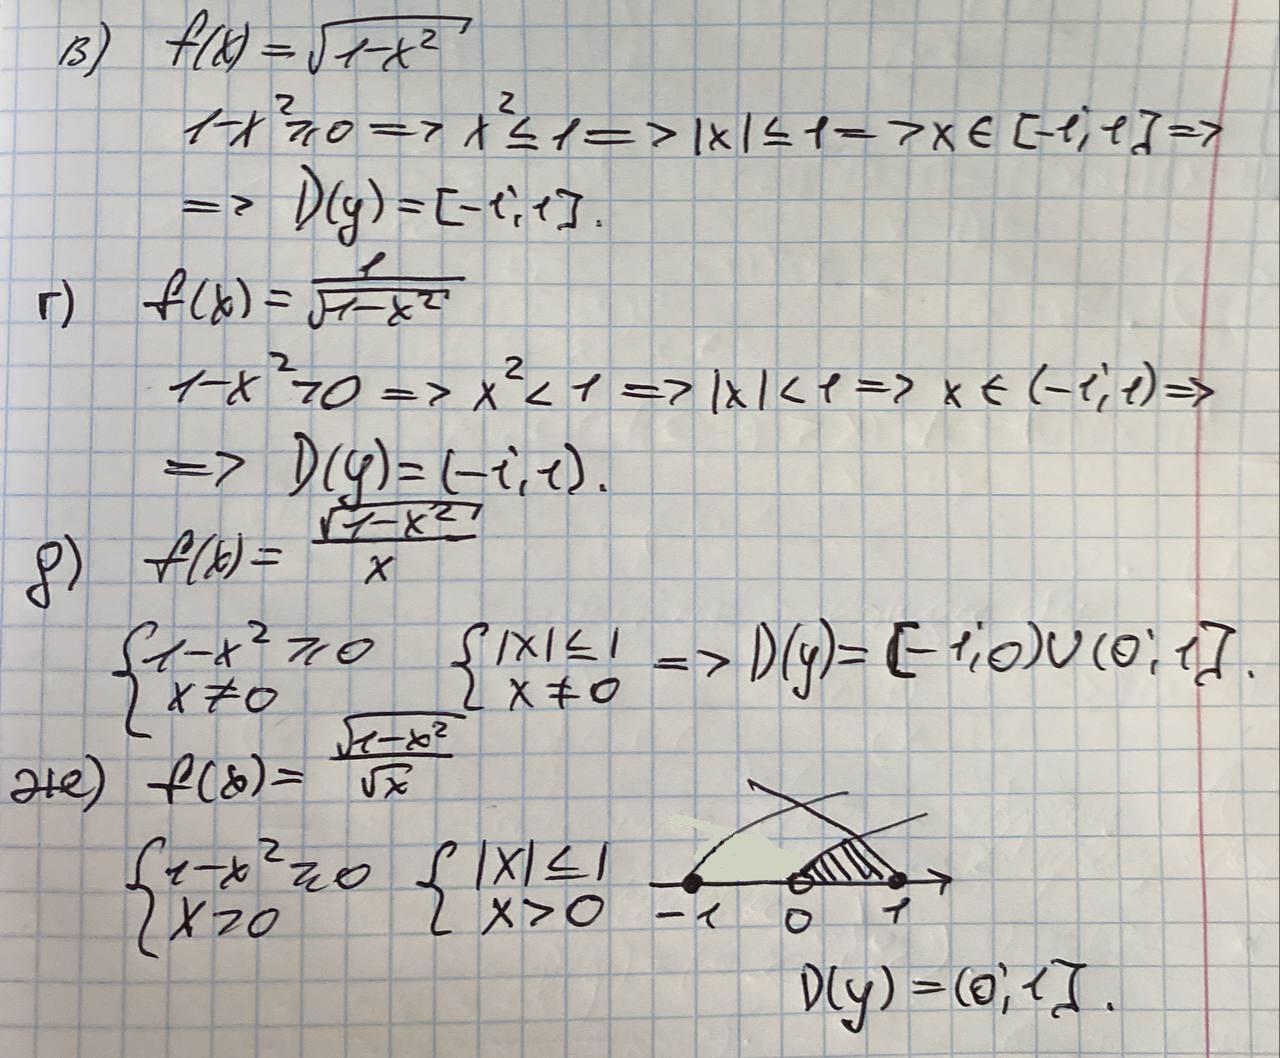 в) f(x) = √(1-x²)
1-x² ⩾ 0 => x² ≤ 1 => |x| ≤ 1 => x ∈ [-1; 1] =>
=> D(y) = [-1; 1].
г) f(x) = 1/√(1-x²)
1-x² > 0 => x² < 1 => |x| < 1 => x ∈ (-1; 1) =>
=> D(y) = (-1; 1).
д) f(x) = √(1-x²)/x
{1-x² ⩾ 0 {|x| ≤ 1 => D(y) = [-1; 0) ∪ (0; 1].
x ≠ 0 x ≠ 0
же) f(x) = √(1-x²)/√x
{1-x² ⩾ 0 {|x| ≤ 1
x > 0 x > 0
-1 0 1
D(y) = (0; 1].